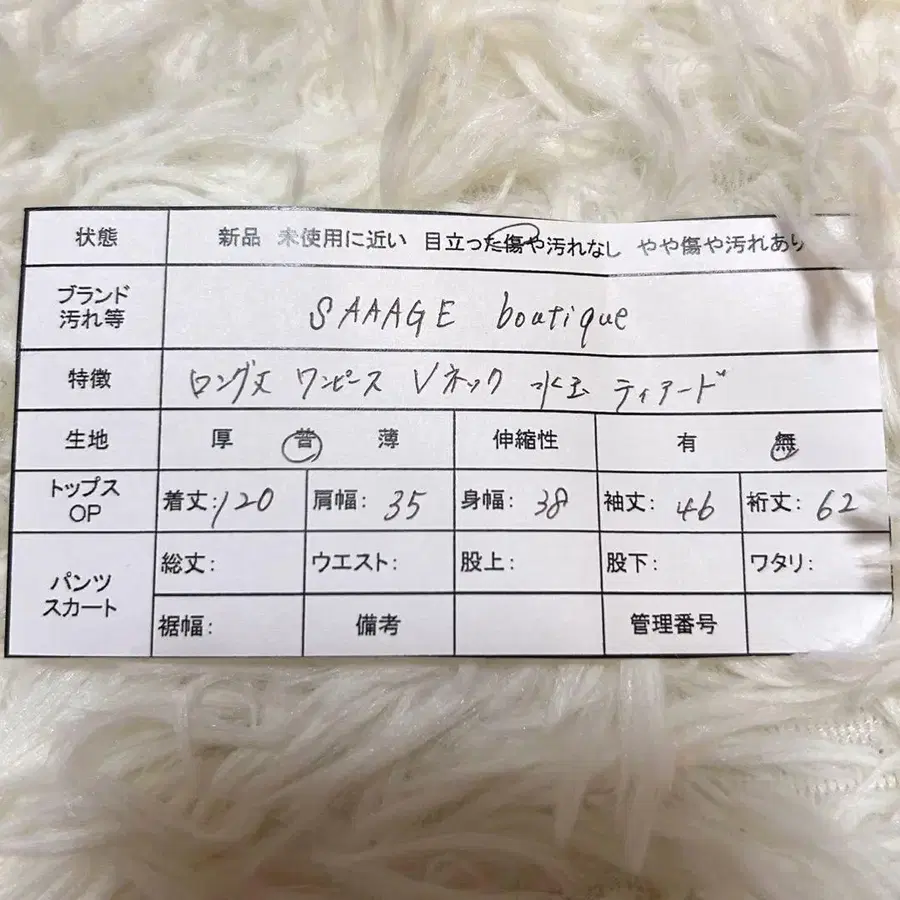 状態 新品 未使用に近い 目立った傷や汚れなし やや傷や汚れあり
ブランド
汚れ等
SAAAGE boutique
特徴 ロング丈 ワンピース Vネック 水玉 ティアード
生地 厚 普 薄 伸縮性 有 無
トップス
OP
着丈:120 肩幅: 35 身幅: 38 袖丈: 46 裄丈: 62
パンツ
スカート
総丈: ウエスト: 股上: 股下: ワタリ:
裾幅: 備考 管理番号